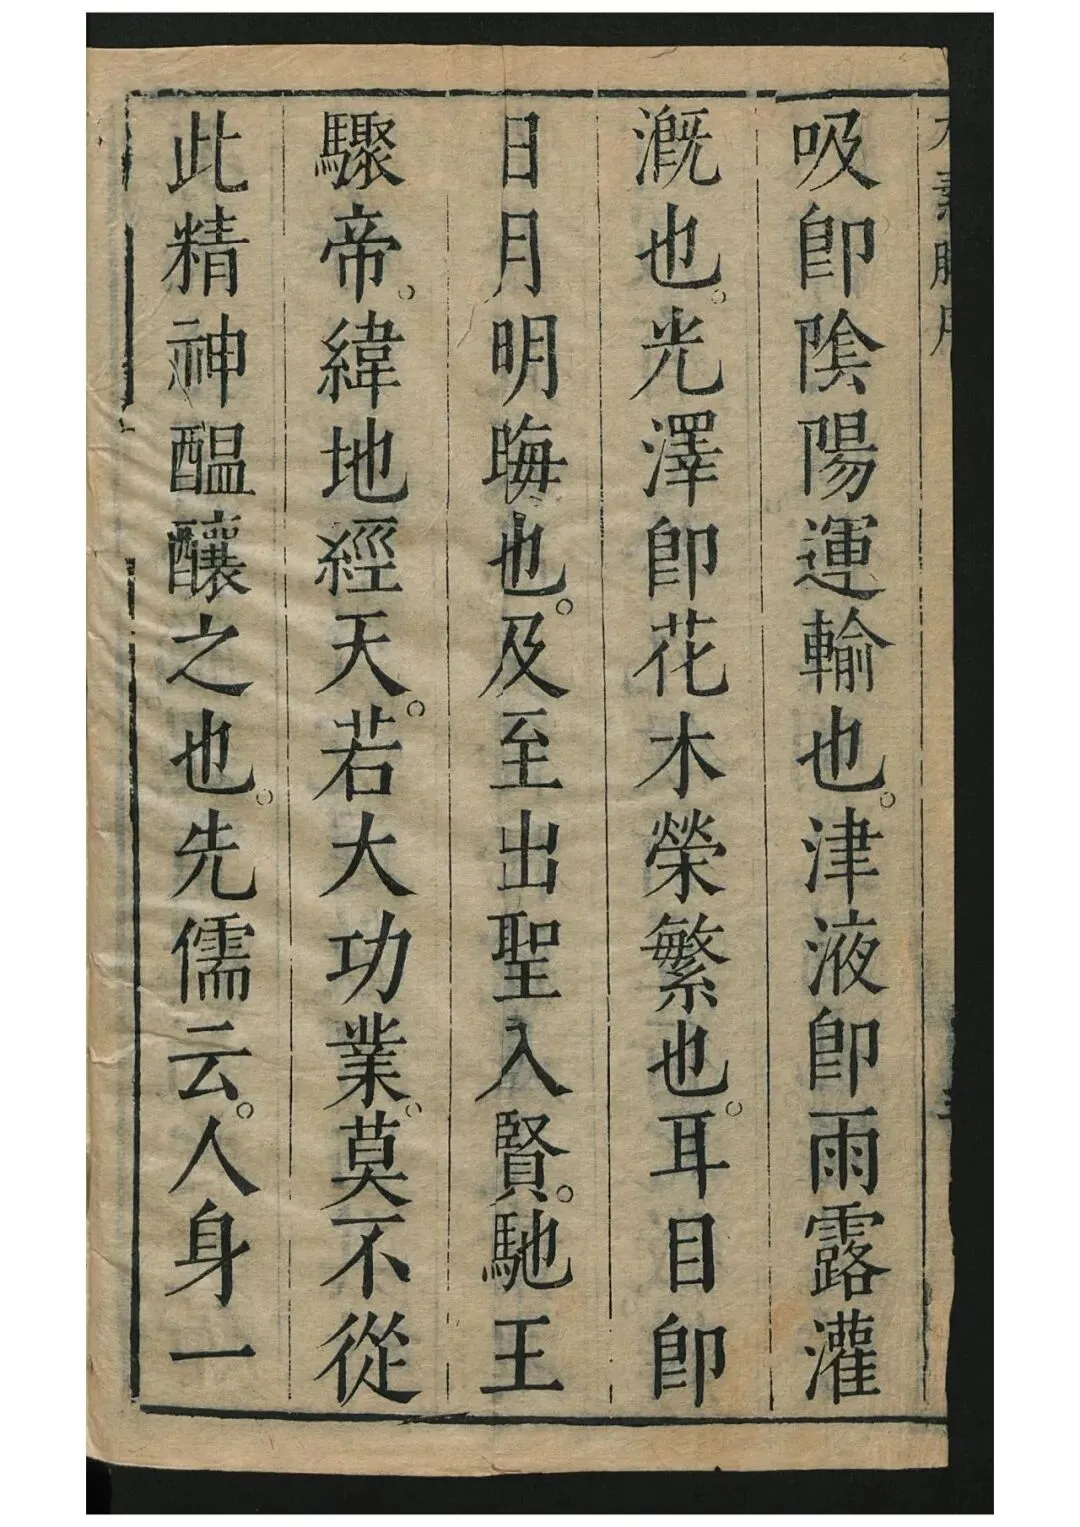 太素脉序
吸即陰陽運輸也。津液即雨露灌
溉也。光澤即花木榮繁也。耳目即
日月明晦也。及至出聖入賢。馳王
驟帝。緯地經天。若大功業。莫不從
此精神醞釀之也。先儒云。人身一